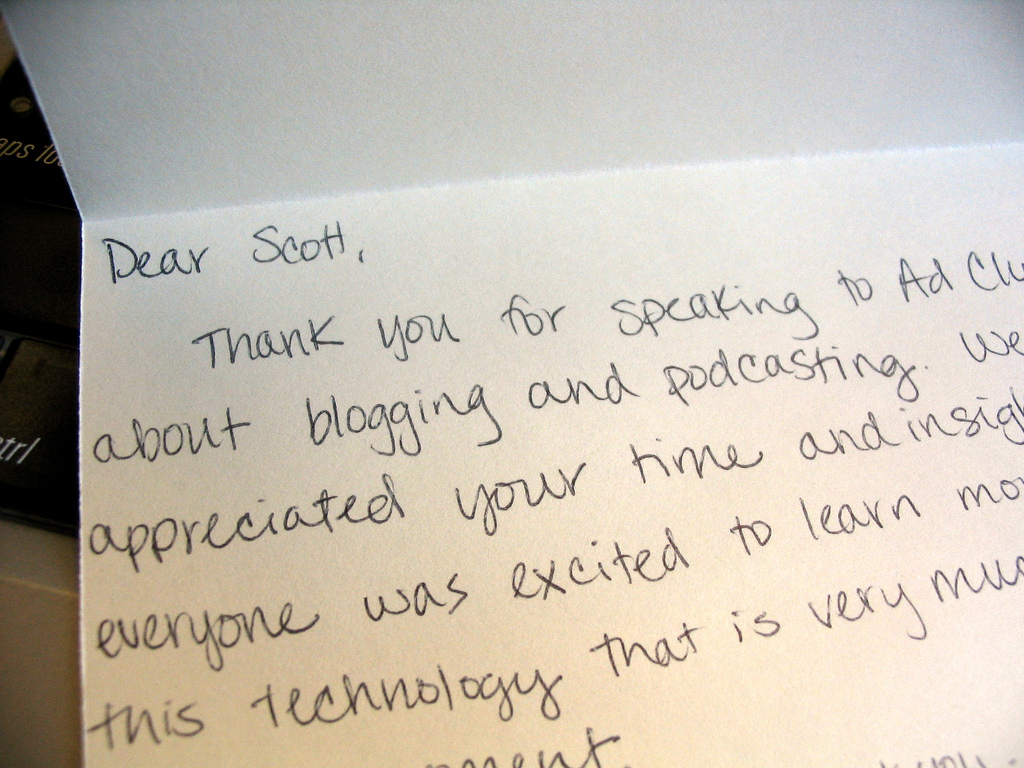 Dear Scott,
Thank you for speaking to Ad Clu
about blogging and podcasting. We
appreciated your time and insigh
everyone was excited to learn mo
this technology that is very mu
ctrl